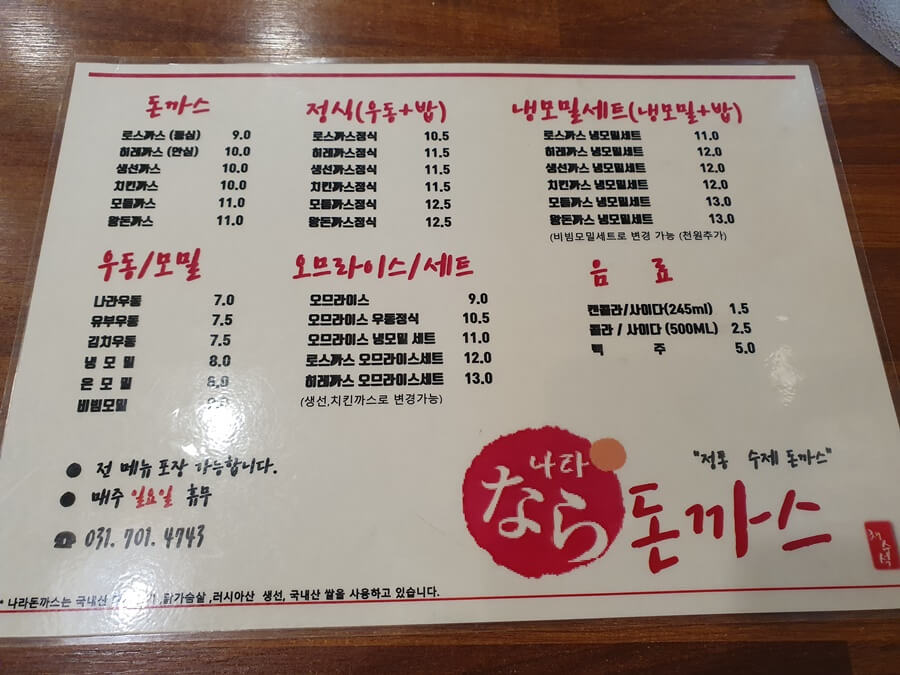 돈까스
로스까스 (등심) 9.0
히레까스 (안심) 10.0
생선까스 10.0
치킨까스 10.0
모듬까스 11.0
왕돈까스 11.0
정식(우동+밥)
로스까스정식 10.5
히레까스정식 11.5
생선까스정식 11.5
치킨까스정식 11.5
모듬까스정식 12.5
왕돈까스정식 12.5
냉모밀세트(냉모밀+밥)
로스까스 냉모밀세트 11.0
히레까스 냉모밀세트 12.0
생선까스 냉모밀세트 12.0
치킨까스 냉모밀세트 12.0
모듬까스 냉모밀세트 13.0
왕돈까스 냉모밀세트 13.0
(비빔모밀세트로 변경 가능 (천원추가)
우동/모밀
나라우동 7.0
유부우동 7.5
김치우동 7.5
냉 모 밀 8.0
온 모 밀 8.0
비빔모밀
오므라이스/세트
오므라이스 9.0
오므라이스 우동정식 10.5
오므라이스 냉모밀 세트 11.0
로스까스 오므라이스세트 12.0
히레까스 오므라이스세트 13.0
(생선,치킨까스로 변경가능)
음 료
캔콜라/사이다(245ml) 1.5
콜라 / 사이다 (500ML) 2.5
맥 주 5.0
● 전 메뉴 포장 가능합니다.
● 매주 일요일 휴무
☎ 031. 701. 4743
나라
なら
"정통 수제 돈까스"
돈까스
* 나라돈까스는 국내산 ,닭가슴살 ,러시아산 생선, 국내산 쌀을 사용하고 있습니다.